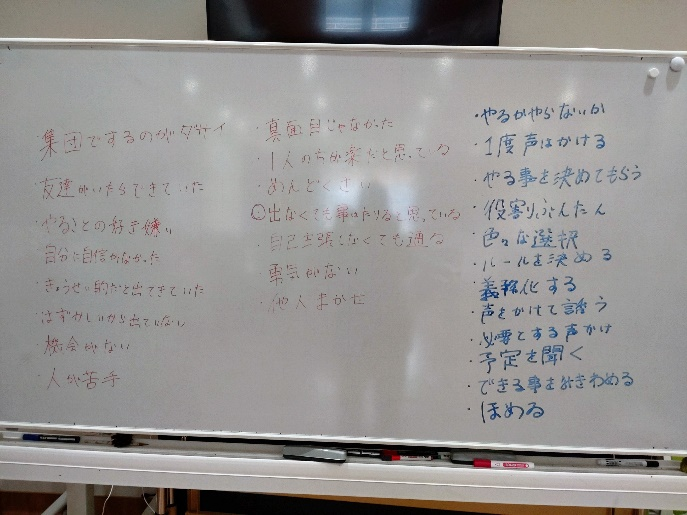 集団でするのがダサイ
・友達がいたらできていた
・やることの好き嫌い
・自分に自信がなかった
・きょうせい的だと出てきていた
・はずかしいから出ていない
・機会がない
・人が苦手
・真面目じゃなかった
・1人の方が楽だと思っている
・めんどくさい
①出なくても事はたりると思っている
・自己主張しなくても通る
・勇気がない
・他人まかせ
・やるかやらないか
・1度声はかける
・やる事を決めてもらう
・役割りぶんたん
・色々な選択
・ルールを決める
・義務化する
・声をかけて誘う
・必要とする声かけ
・予定を聞く
・できる事を見きわめる
・ほめる